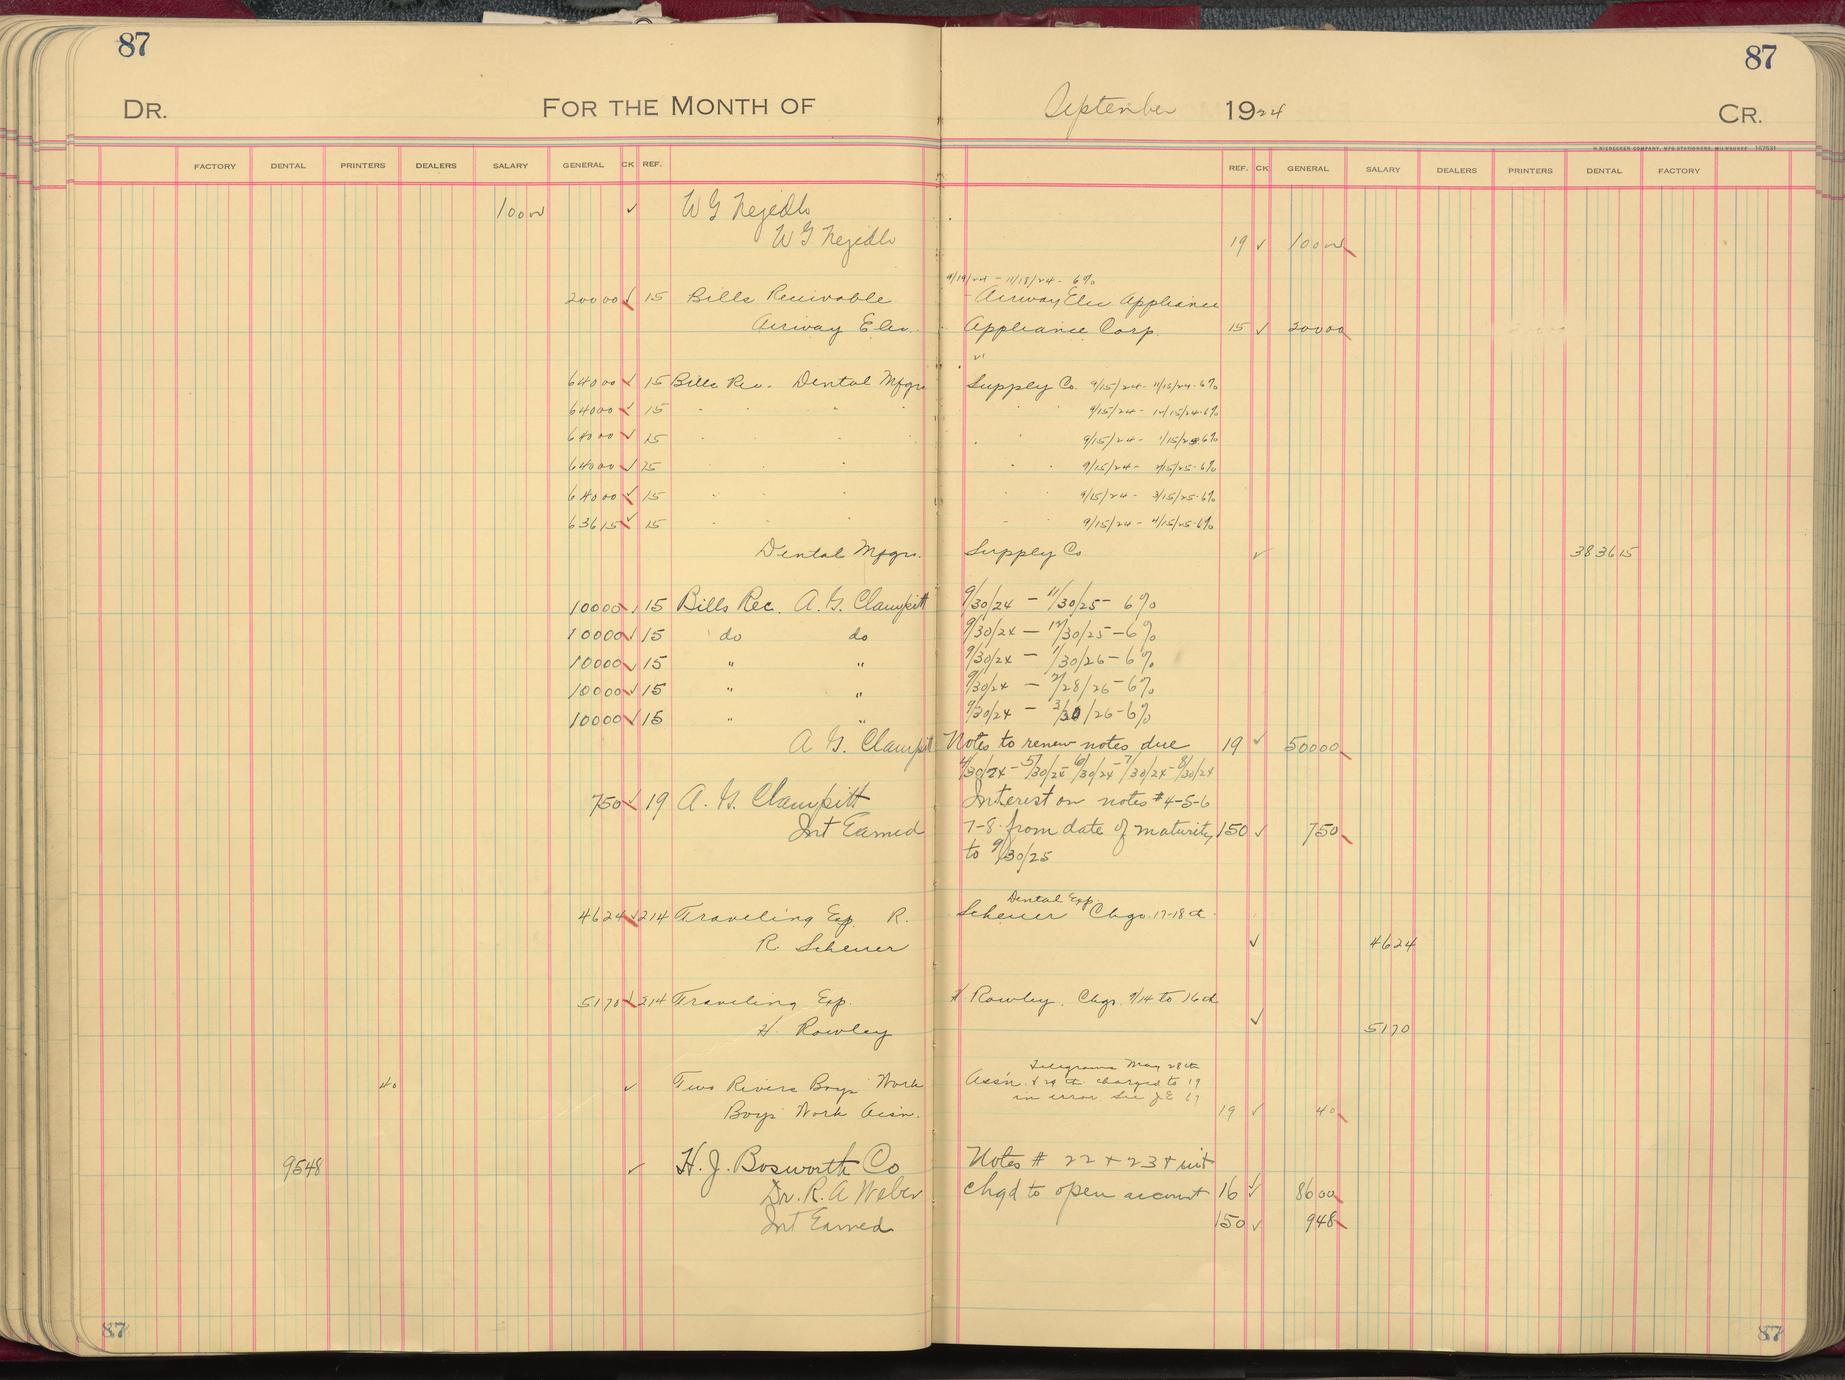 87 87
DR. FOR THE MONTH OF September 1924 CR.
H. NIEDECKEN COMPANY, MFG STATIONERS, MILWAUKEE 167531
FACTORY DENTAL PRINTERS DEALERS SALARY GENERAL CK REF. REF. CK GENERAL SALARY DEALERS PRINTERS DENTAL FACTORY
10000 ✓ W G Nejedlo
W G Nejedlo 19 ✓ 10000
9/19/24 - 11/18/24 - 6%
20000 ✓ 15 Bills Receivable - Airway Elec Appliance
Airway Elec. Appliance Corp. 15 ✓ 20000
64000 ✓ 15 Bills Rec. Dental Mfgrs Supply Co. 9/15/24 - 11/15/24 - 6%
64000 ✓ 15 " " " " " 9/15/24 - 12/15/24 - 6%
64000 ✓ 15 " " " " " 9/15/24 - 1/15/25 6%
64000 ✓ 15 " " " " 9/15/24 - 2/15/25 - 6%
64000 ✓ 15 " " " " " 9/15/24 - 3/15/25 - 6%
63615 ✓ 15 " " " " " 9/15/24 - 4/15/25 - 6%
Dental Mfgrs. Supply Co ✓ 383615
10000 ✓ 15 Bills Rec. A. G. Clampitt 9/30/24 - 11/30/25 - 6%
10000 ✓ 15 do do 9/30/24 - 12/30/25 - 6%
10000 ✓ 15 " " 9/30/24 - 1/30/26 - 6%
10000 ✓ 15 " " 9/30/24 - 2/28/26 - 6%
10000 ✓ 15 " " 9/30/24 - 3/30/26 - 6%
A. G. Clampitt Notes to renew notes due 19 ✓ 50000
4/30/24 - 5/30/24 - 6/30/24 - 7/30/24 - 8/30/24
750 ✓ 19 A. G. Clampitt Interest on notes #4-5-6
Int Earned 7-8 from date of maturity 150 ✓ 750
to 9/30/25
Dental Exp.
4624 ✓ 214 Traveling Exp. R. Scheuer Chgo. 17-18th
R. Scheuer ✓ 4624
5170 ✓ 214 Traveling Exp. H Rowley. Chgo. 9/14 to 16th
H. Rowley ✓ 5170
Telegrams May 28th
40 ✓ Two Rivers Boys Work Ass'n. & 29th charged to 19
in error See JE 67
Boys Work Assn. 19 ✓ 40
9548 ✓ H. J. Bosworth Co Notes # 22 + 23 + int
Dr. R. A Weber chgd to open account 16 ✓ 8600
Int Earned 150 ✓ 948
87 87